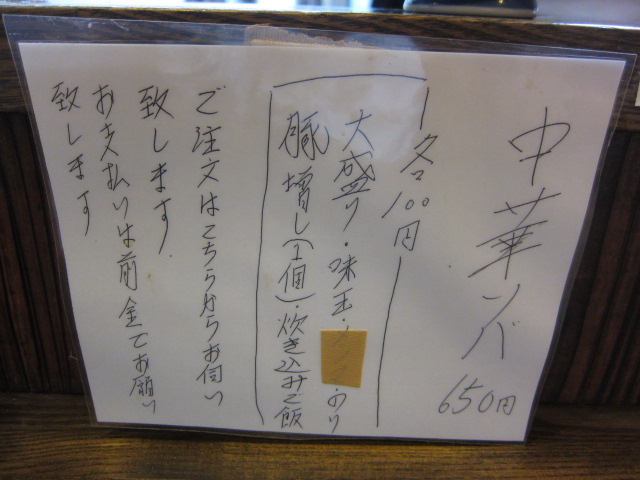 中華ソバ
650円
一各100円
大盛り・味玉・
・のり
豚増し(1個)・炊き込みご飯
ご注文はこちらからお伺い
致します
お支払いは前金でお願い
致します